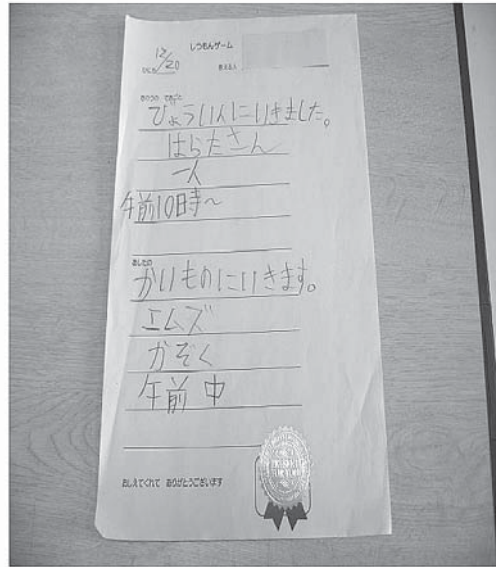 しつもんゲーム
12/20
きのうの できごと
びょういんにいきました。
はらださん
一人
午前10時～
あしたの
かいものにいきます。
エムズ
かぞく
午前中
おしえてくれて ありがとうございます